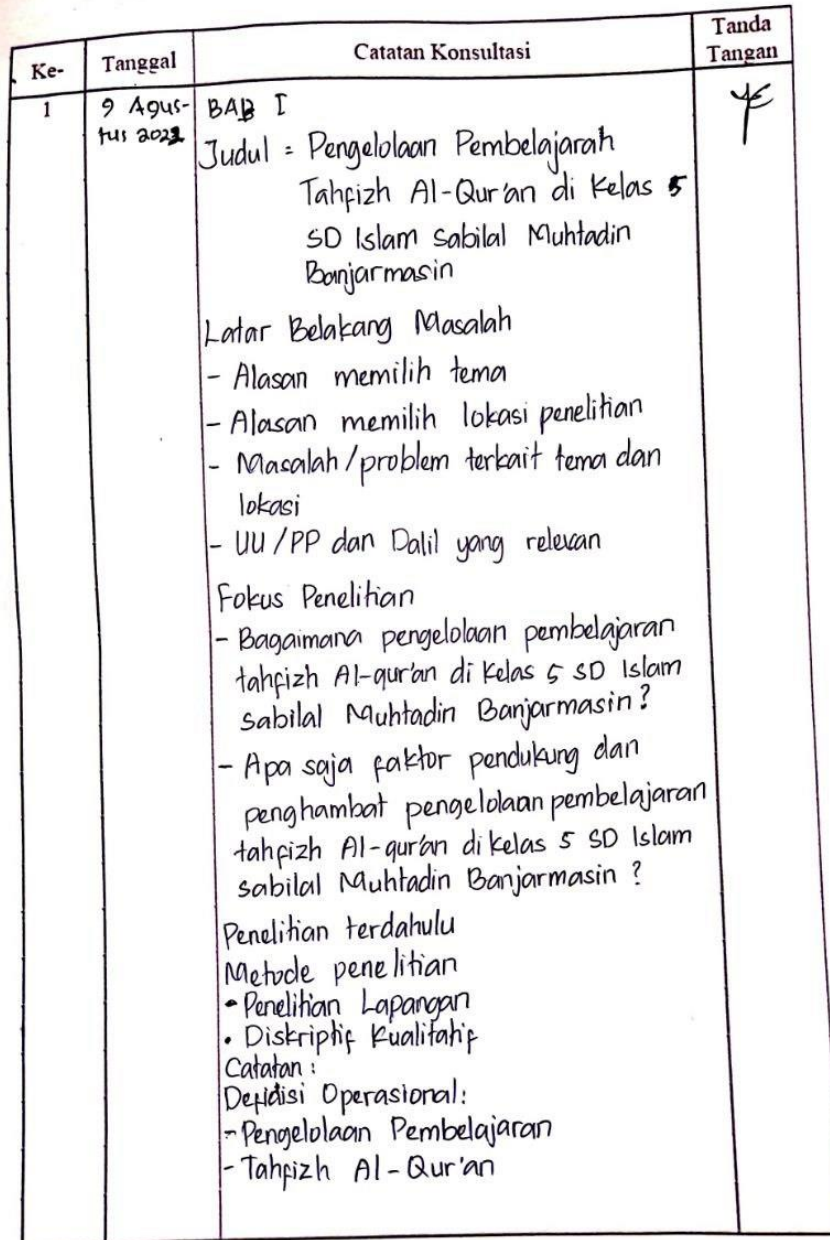 Ke-
Tanggal
Catatan Konsultasi
Tanda
Tangan
1
9 Agus-
tus
BAB I
Judul = Pengelolaan Pembelajarah
Tahfizh Al-Qur'an di Kelas 5
SD Islam Sabilal Muhtadin
Banjarmasin
Latar Belakang Masalah
- Alasan memilih tema
- Alasan memilih lokasi penelitian
- Masalah/problem terkait tema dan
lokasi
- UU/PP dan Dalil yang relevan
Fokus Penelitian
- Bagaimana pengelolaan pembelajaran
tahfizh Al-qur'an di Kelas 5 SD Islam
Sabilal Muhtadin Banjarmasin?
- Apa saja faktor pendukung dan
penghambat pengelolaan pembelajaran
tahfizh Al-qur'an di kelas 5 SD Islam
Sabilal Muhtadin Banjarmasin ?
Penelitian terdahulu
Metode penelitian
• Penelitian Lapangan
• Diskriptif Kualitatif
Catatan :
Operasional:
- Pengelolaan Pembelajaran
- Tahfizh Al-Qur'an